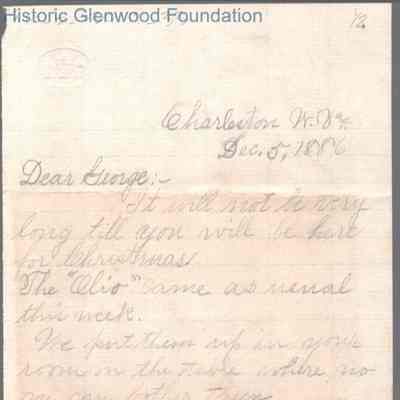 Historic Glenwood Foundation
Charleston W. Va.
Dec. 5, 1886
Dear George:-
It will not be very
long till you will be here
for Christmas.
The "Olio" came as usual
this week.
We put them up in your
room on the table where no
one can bother them